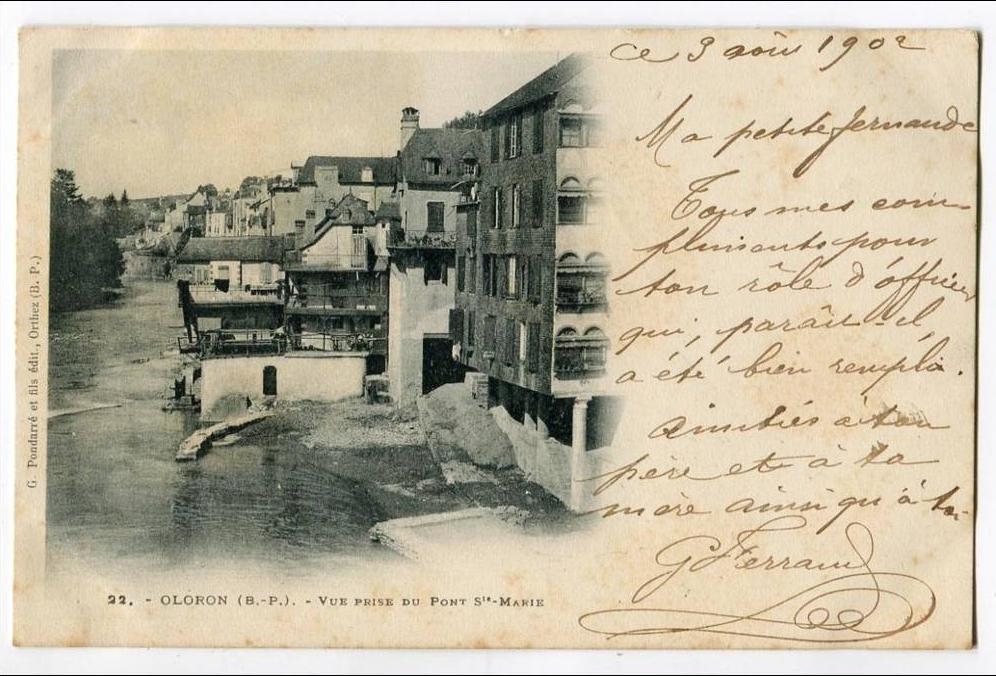 ce 3 août 1902
Ma petite Fernande
Tous mes com-
pliments pour
ton rôle d'officier
qui, paraît-il,
a été bien rempli.
Amitiés à ton
père et à ta
mère ainsi qu'à toi
G Ferrand
G. Pondarré et fils édit., Orthez (B. P.)
22. - OLORON (B.-P.). - VUE PRISE DU PONT Ste-MARIE